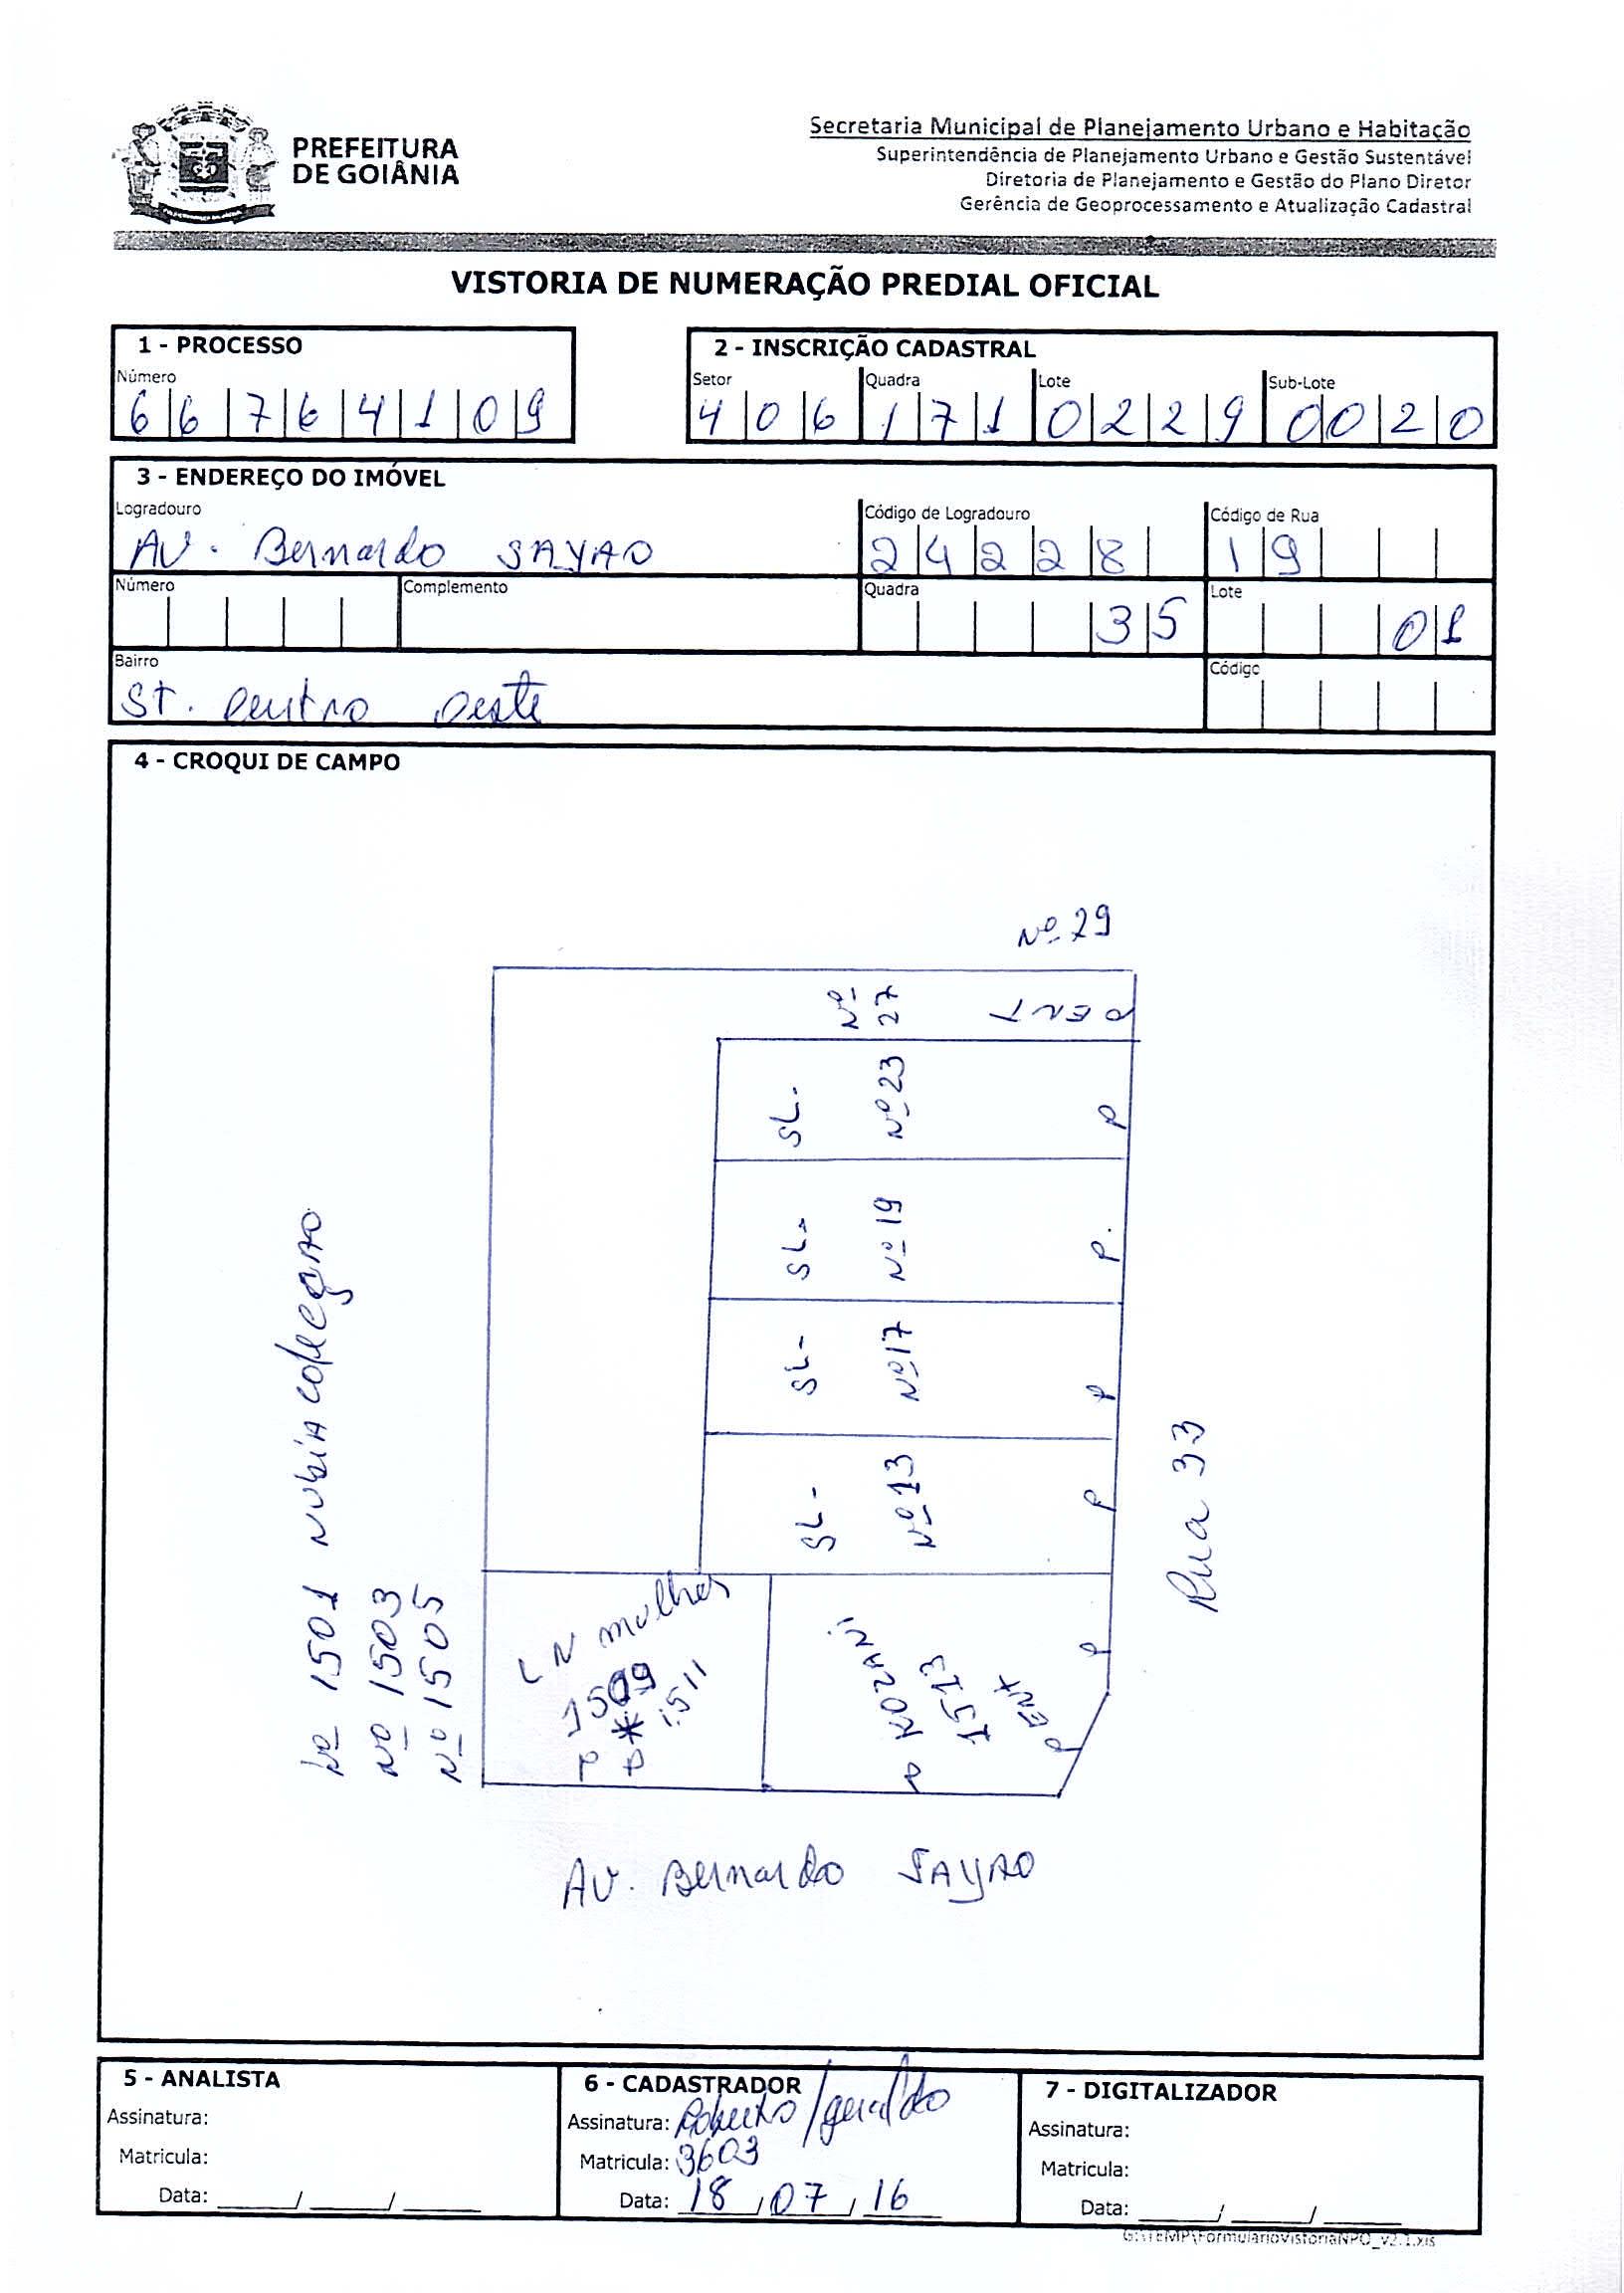 PREFEITURA
DE GOIÂNIA
Secretaria Municipal de Planejamento Urbano e Habitação
Superintendência de Planejamento Urbano e Gestão Sustentável
Diretoria de Planejamento e Gestão do Plano Diretor
Gerência de Geoprocessamento e Atualização Cadastral
VISTORIA DE NUMERAÇÃO PREDIAL OFICIAL
1 - PROCESSO
Número
66764109
2 - INSCRIÇÃO CADASTRAL
Setor Quadra Lote Sub-Lote
406 171 0229 0020
3 - ENDEREÇO DO IMÓVEL
Logradouro Código de Logradouro Código de Rua
AV. Bernardo SAYAO 24228 19
Número Complemento Quadra Lote
35 01
Bairro Código
St. Centro Oeste
4 - CROQUI DE CAMPO
Nº 29
Nº 27
P ENT
SL- Nº 23 P
SL- Nº 19 P.
SL- Nº 17 P
SL- Nº 13 P
Rua 33
Nº 1501 NUBIA COleçÃO
Nº 1503
Nº 1505
LN mulher
1509
P * 1511
P
P KOZANi
1513
P ENT
P
AV. Bernardo SAYAO
5 - ANALISTA
Assinatura:
Matricula:
Data: ____/____/____
6 - CADASTRADOR
Assinatura: Roberto/geraldo
Matricula: 3603
Data: 18/07/16
7 - DIGITALIZADOR
Assinatura:
Matricula:
Data: ____/____/____
G:\TEMP\FormularioVistoriaNPO_v2.1.xls